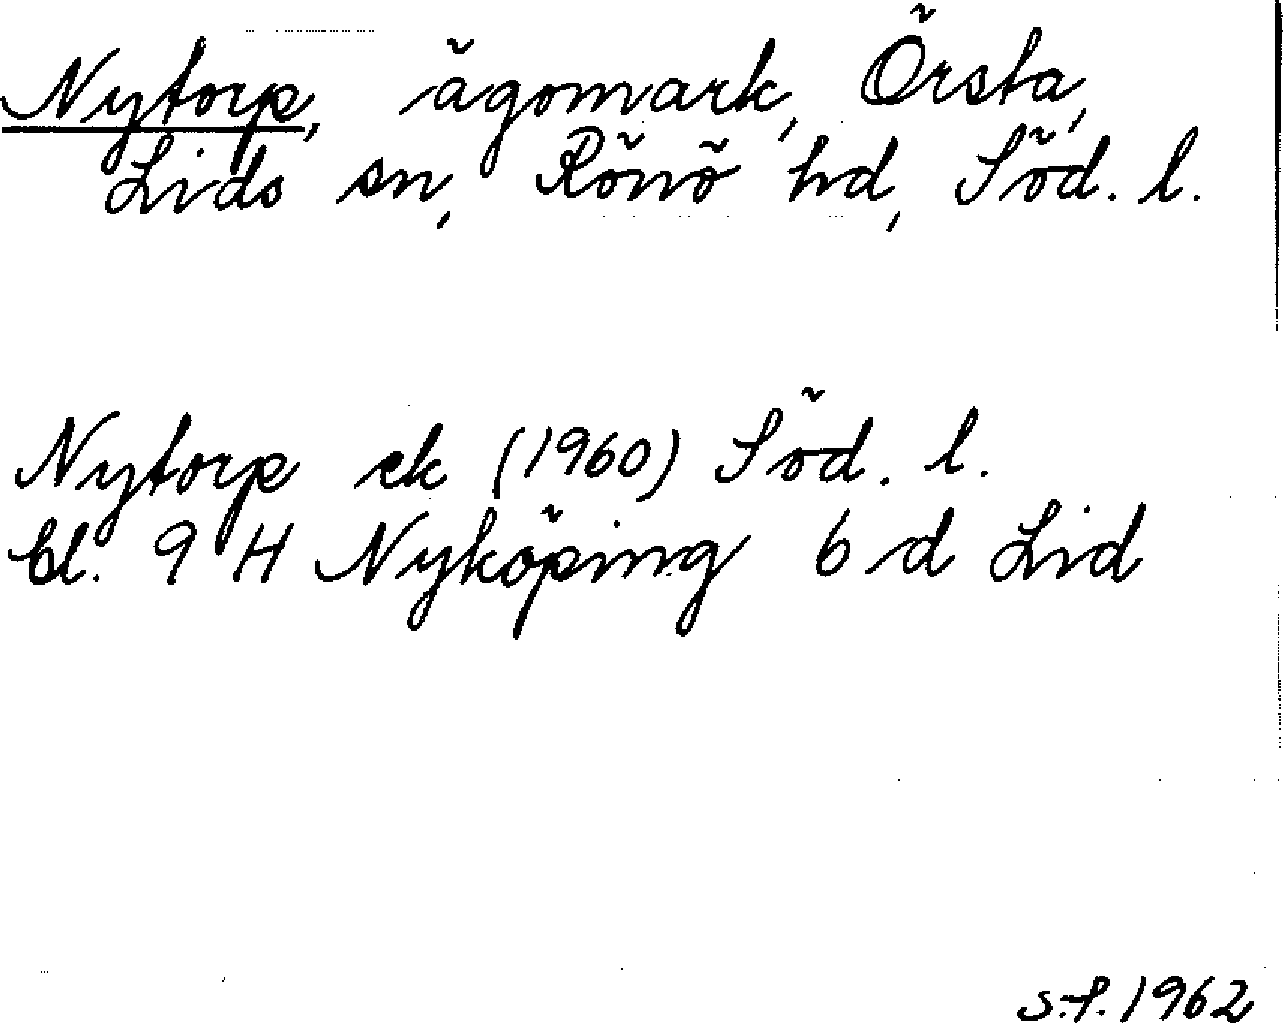 Nytorp, ägomark, Örsta,
Lids sn, Rönö hd, Söd. l.
Nytorp ek (1960) Söd. l.
bl. 9 H Nyköping 6 d Lid
S.F. 1962